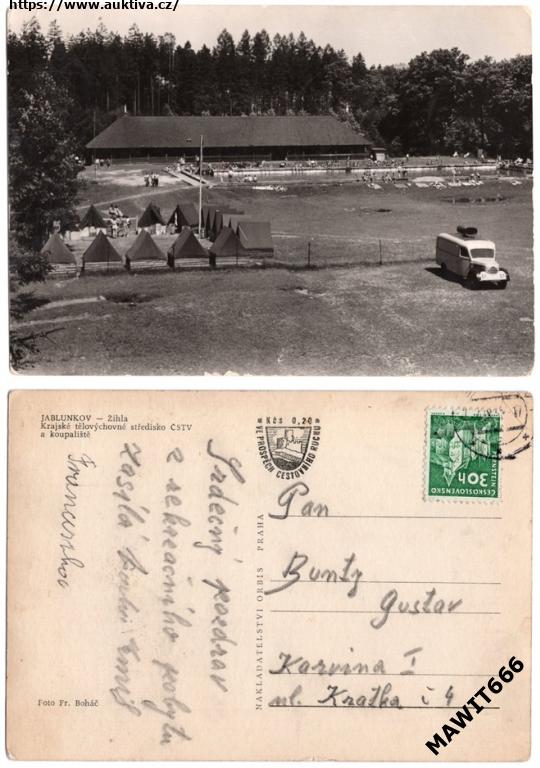 https://www.auktiva.cz/
JABLUNKOV — Žihla
Krajské tělovýchovné středisko ČSTV
a koupaliště
Srdečný pozdrav
z rekreačního pobytu
zasílá
Emil
Foto Fr. Boháč
NAKLADATELSTVÍ ORBIS PRAHA
Kčs 0,20
VE PROSPĚCH CESTOVNÍHO RUCHU
30h
ČESKOSLOVENSKO
Pan
Bunty
Gustav
Karvina I
ul. Kratka č 4
MAWIT666